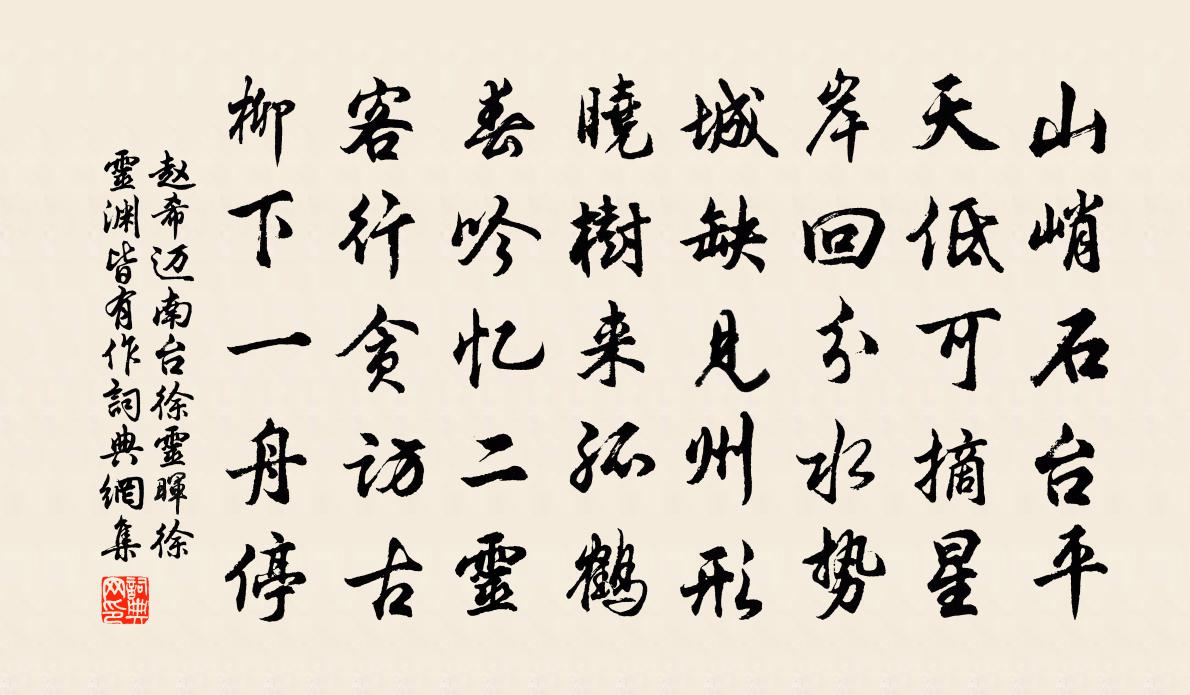 山峭石台平
天低可摘星
岸回分水势
城缺见州形
曉樹来孤鹤
春吟忆二靈
客行贪访古
柳下一舟停
赵希迈南台徐靈暉徐
靈渊皆有作詞典網集
詞典
网印